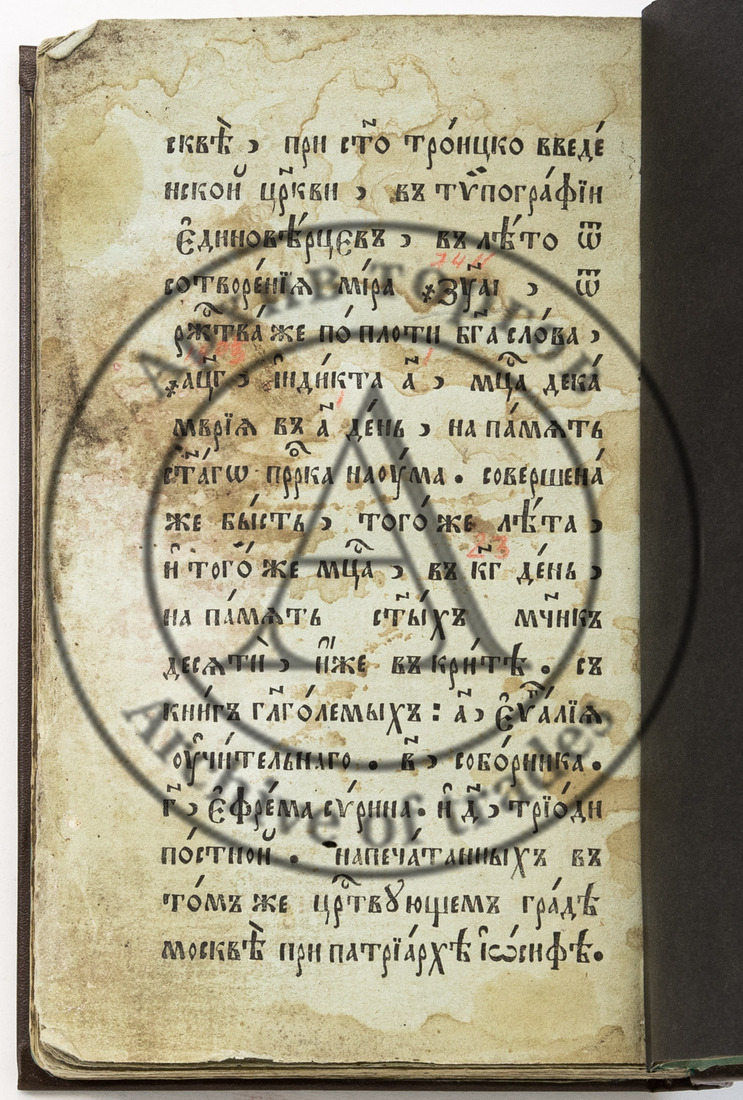 сквѣ̀ , при ст҃о тро́ицко введе́
нской цр҃кви , въ тѷпогра́фїи
є҆диновѣ́рцєвъ , въ лѣ́то ѿ
сотворе́нїѧ мі́ра ҂зу҃аі , ѿ
рж҃тва́ же по́ плоти бг҃а сло́ва ,
҂ац҃г , і҆нді́кта а҃ , мц҃а дека́
мврїѧ въ а҃ де́нь , на па́мѧть
ст҃а́гѡ прⷪ҇рка нао́ума . соверше́на
же бы́сть , того́ же лѣ́та ,
и҆ того́ же мц҃а , въ кг҃ де́нь ,
на па́мѧть ст҃ы́хъ мч҃нкъ
десѧтѝ , и҆̀же въ кри́тѣ . съ
кни́гъ гл҃го́лемыхъ : а҃ , є҆ѵⷢ҇а́лїѧ
оу҆чи́тельнаго . в҃ , собо́рника .
г҃ , є҆фре́ма сѵ́рина . и҆ д҃ , трїо́ди
по́стной . напеча́танныхъ въ
то́мъ же црⷭ҇твꙋющемъ гра́дѣ
москвѣ̀ при патрїа́рхѣ і҆ѡ́сифѣ .
Archive of trades